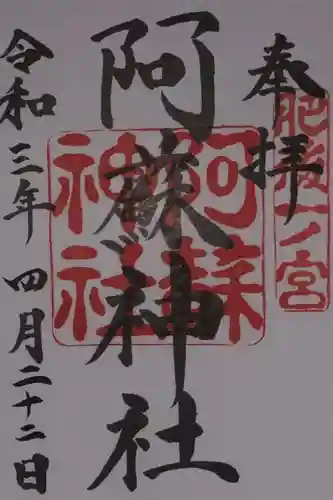 奉拝
肥後一ノ宮
阿蘇神社
阿蘇
神社
令和三年四月二十二日